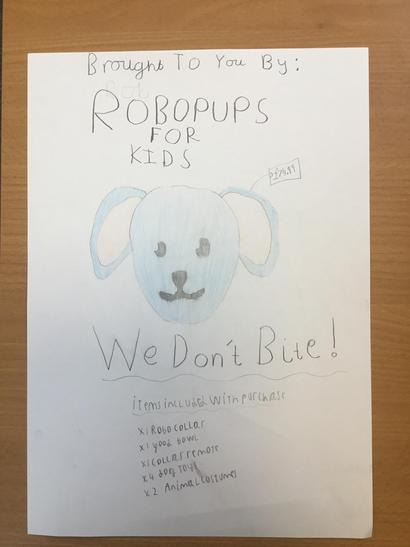 Brought To You By:
ROBOPUPS
FOR
KIDS
We Don't Bite!
items included with purchase
x1 Robo collar
x1 food bowl
x1 collar remote
x4 dog toys
x2 Animal costumes